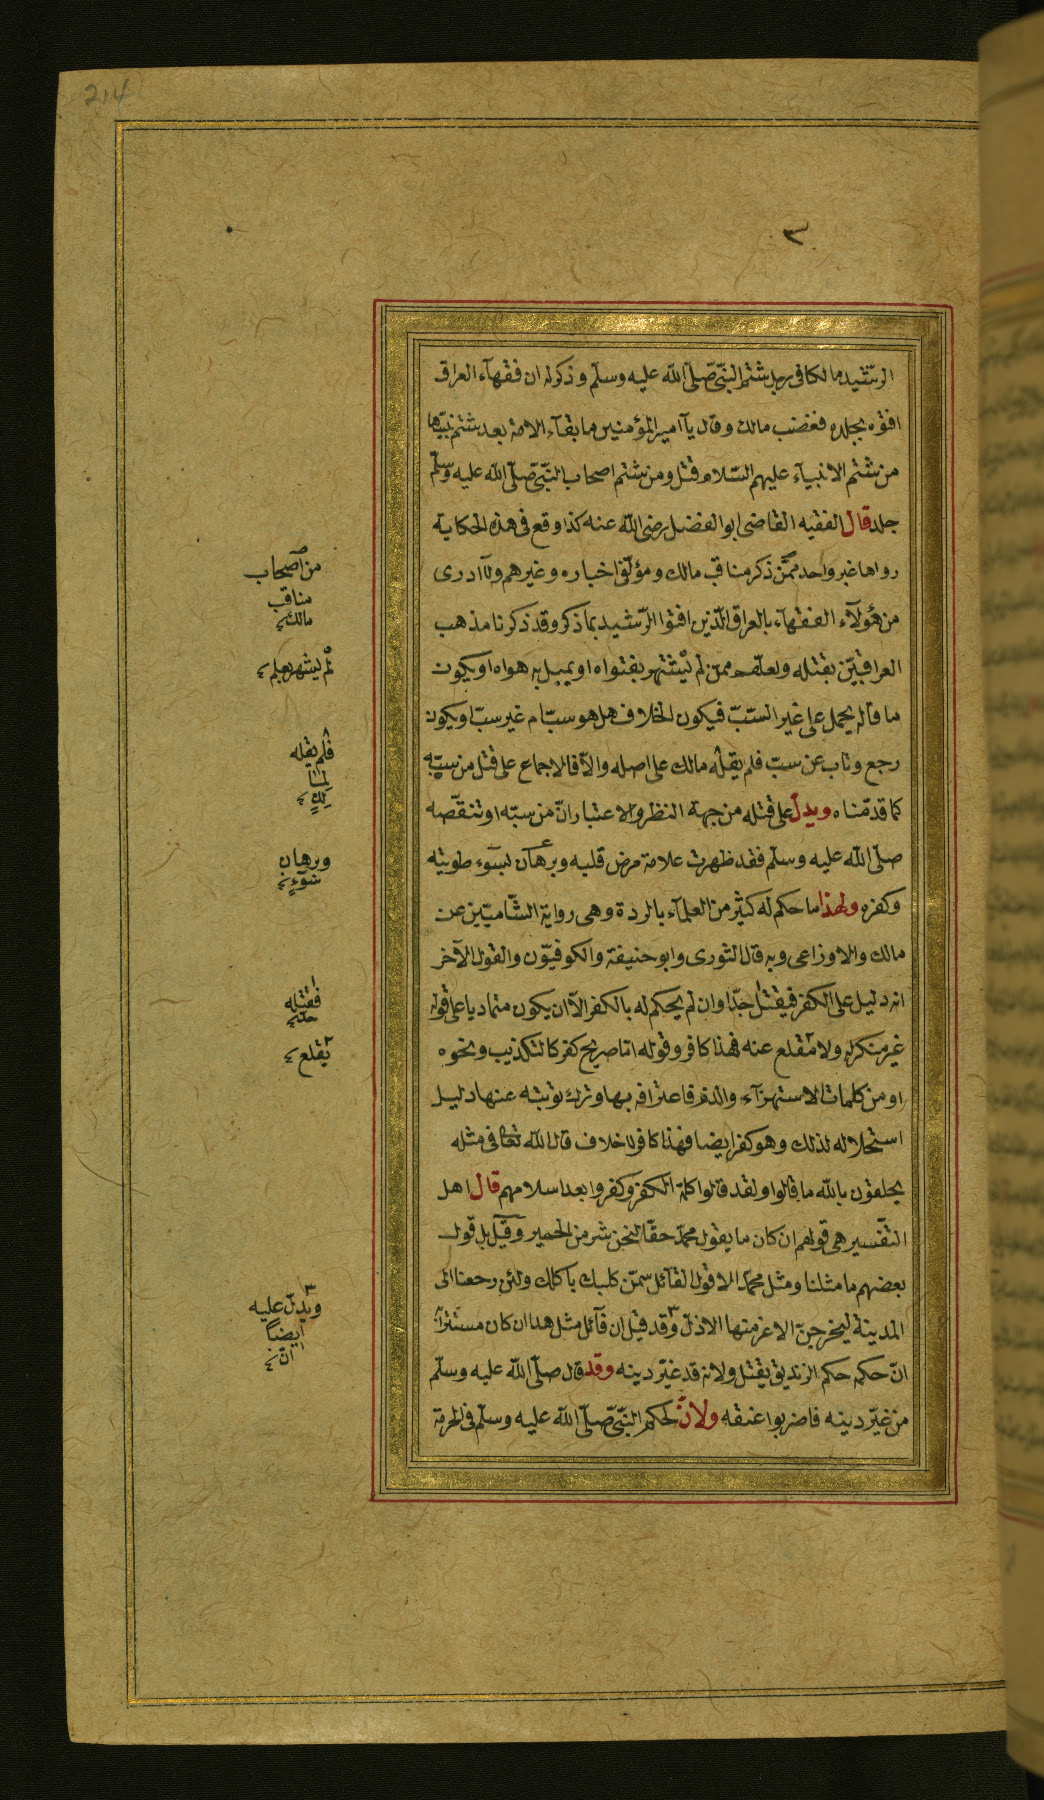 214
٣
الرّشيد مالكا فى رجل شتم النّبىّ صلّى اللّه عليه وسلّم وذكر له ان فقهآء العراق
افتوه بجلده فغضب مالك وقال يآ امير المؤمنين ما بقآء الامة بعد شتم نبيّها
من شتم الانبيآء عليهم السّلام قتل ومن شتم اصحاب النّبىّ صلّى اللّه عليه وسلّم
جلد قال الفقيه القاضى ابو الفضل رضى اللّه عنه كذا وقع فى هذه الحكاية
رواها غير واحد ممّن ذكر مناقب مالك ومؤلّفى اخباره وغيرهم ولآ ادرى
من هؤلآء الفقهآء بالعراق الّذين افتوا الرّشيد بما ذكر وقد ذكرنا مذهب
العراقيّين بقتله ولعلّهم ممّن لم يشتهر بفتواه او يميل به هواه او يكون
ما قاله يحمل على غير السّبّ فيكون الخلاف هل هو سبّ ام غير سبّ او يكون
رجع وتاب عن سبّ فلم يقله مالك على اصله والاّ فالاجماع على قتل من سبّه
كما قدّمناه ويدلّ على قتله من جهة النظر والاعتبار انّ من سبّه او تنقّصه
صلّى اللّه عليه وسلّم فقد ظهرت علامة مرض قلبه وبرهان لسوء طويته
وكفره ولهذا ما حكم له كثير من العلمآء بالردة وهى رواية الشّاميّين عن
مالك والاوزاعى وبه قال الثورى وابو حنيفة والكوفيّون والقول الآخر
انه دليل على الكفر فيقتل حدّا وان لم يحكم له بالكفر الاّ ان يكون متماديا على قوله
غير منكر له ولا مقلع عنه فهذا كافر وقوله امّا صريح كفر كالتكذيب ونحوه
او من كلمات الاستهزآء والذم فاعترافه بها وترك توبته عنها دليل
استحلاله لذلك وهو كفر ايضا فهذا كافر بلا خلاف قال اللّه تعالى فى مثله
يحلفون باللّه ما قالوا ولقد قالوا كلمة الكفر وكفروا بعد اسلامهم قال اهل
التفسير هى قولهم ان كان ما يقول محمّد حقّا لنحن شر من الحمير وقيل بل قول
بعضهم ما مثلنا ومثل محمّد الا قول القآئل سمّن كلبك ياكلك ولئن رجعنا الى
المدينة ليخرجنّ الاعز منها الاذلّ وقد قيل ان قآئل مثل هذا ان كان مستترا
انّ حكمه حكم الزنديق يقتل ولانه قد غيّر دينه وقد قال صلّى اللّه عليه وسلّم
من غيّر دينه فاضربوا عنقه ولانّ لحكم النّبىّ صلّى اللّه عليه وسلّم فى الحرمة
من اصحاب
مناقب
مالك
لم يشتهر بعلم
فلم يقله
لما
لك
وبرهان
سوٓء
فقتله
حد
يقلع
ويدلّ عليه
ايضاً
انّ